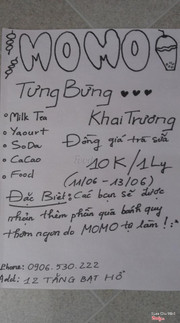 MOMO
Tưng Bừng
Khai Trương
• Milk Tea
• Yaourt
• SoDa
• CaCao
• Food
Đồng giá trà sữa
10K/1Ly
(11/06 - 13/06)
Đặc Biệt: Các bạn sẽ được
nhận thêm phần quà bánh quy
thơm ngon do MOMO tự làm!
Phone: 0906.530.222
Add: 12 TĂNG BẠT HỔ